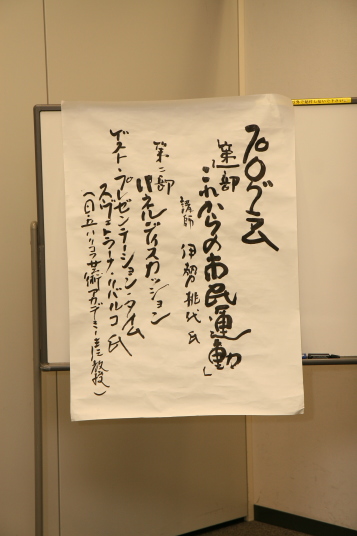 プログラム
第一部
「これからの市民運動」
講師 伊勢桃代氏
第二部
パネルディスカッション
ゲスト・プレゼンテーション・タイム
スヴェトラーナ・リバルコ氏
ハリコフ芸術アカデミー 教授）